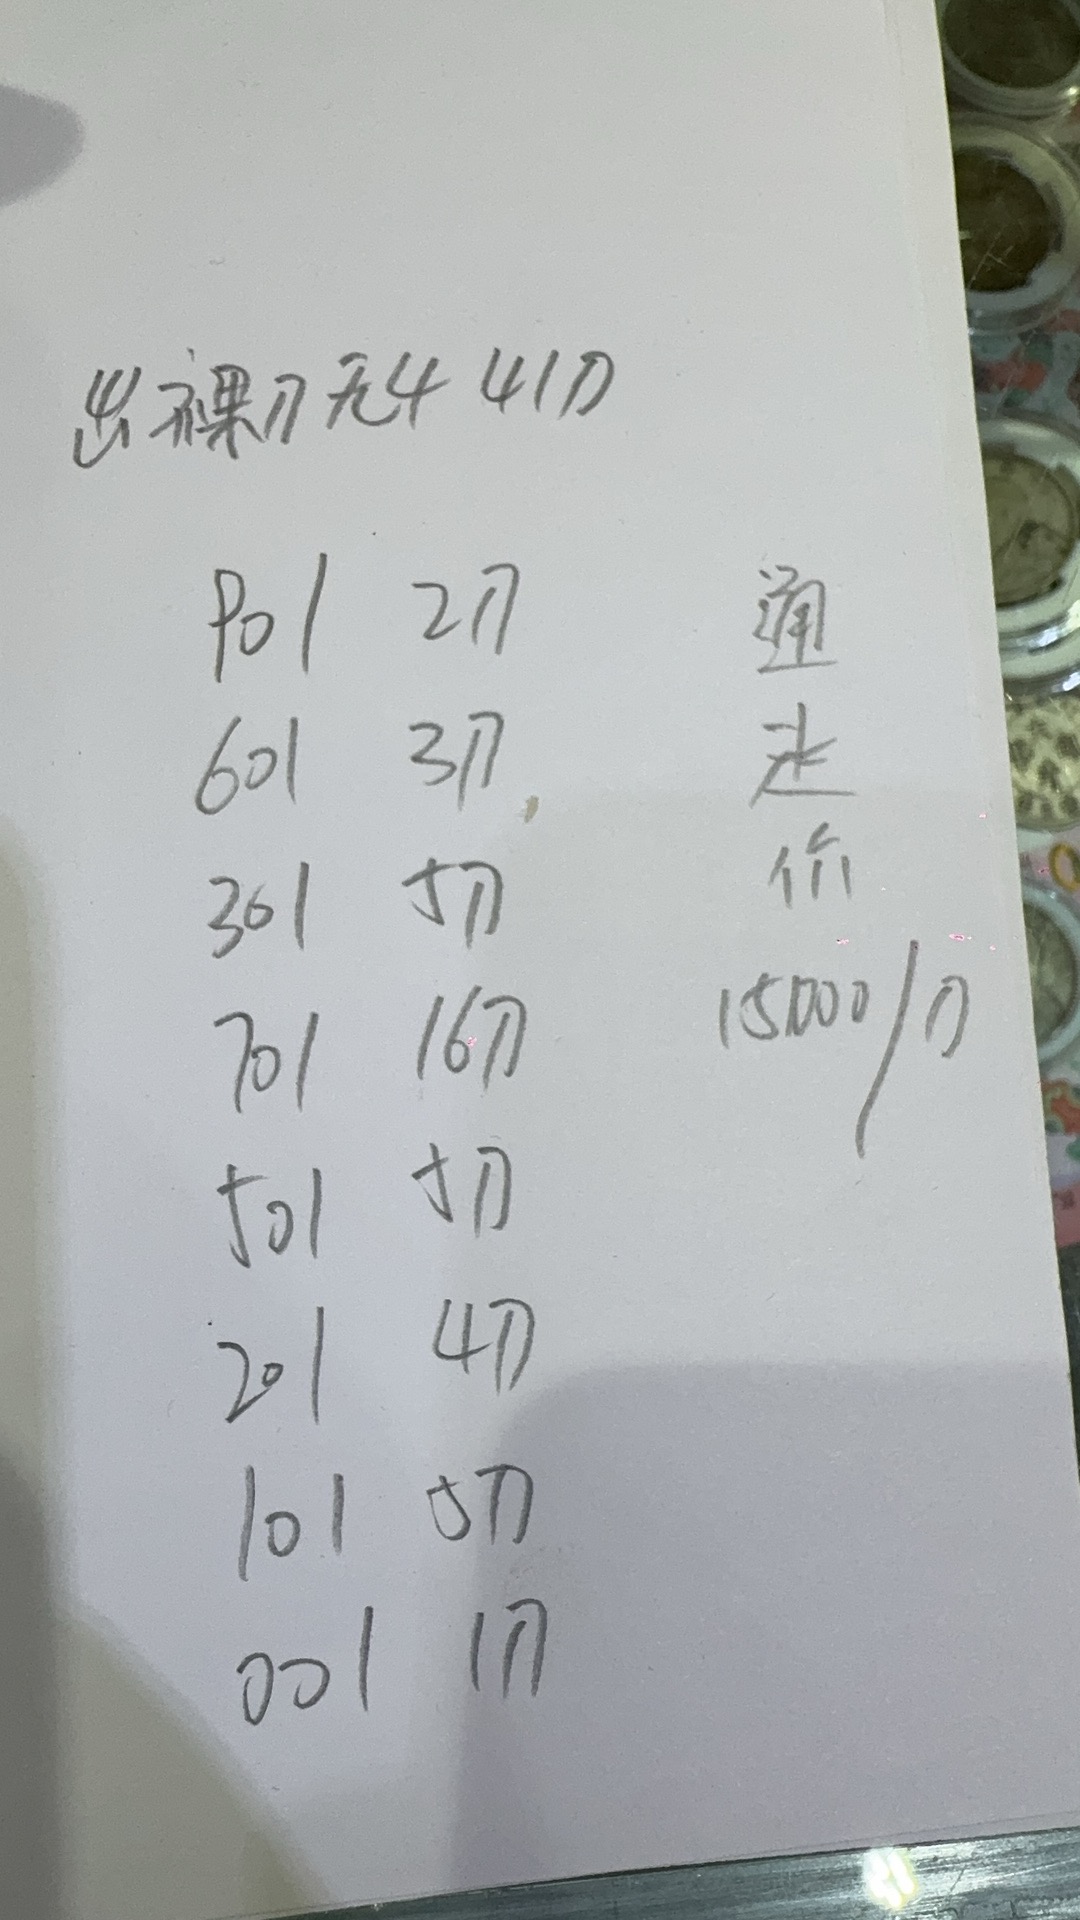 出裸刀无4 41刀
901 2刀
601 3刀
301 5刀
701 16刀
501 5刀
201 4刀
101 5刀
001 1刀
通
走
价
15000/刀